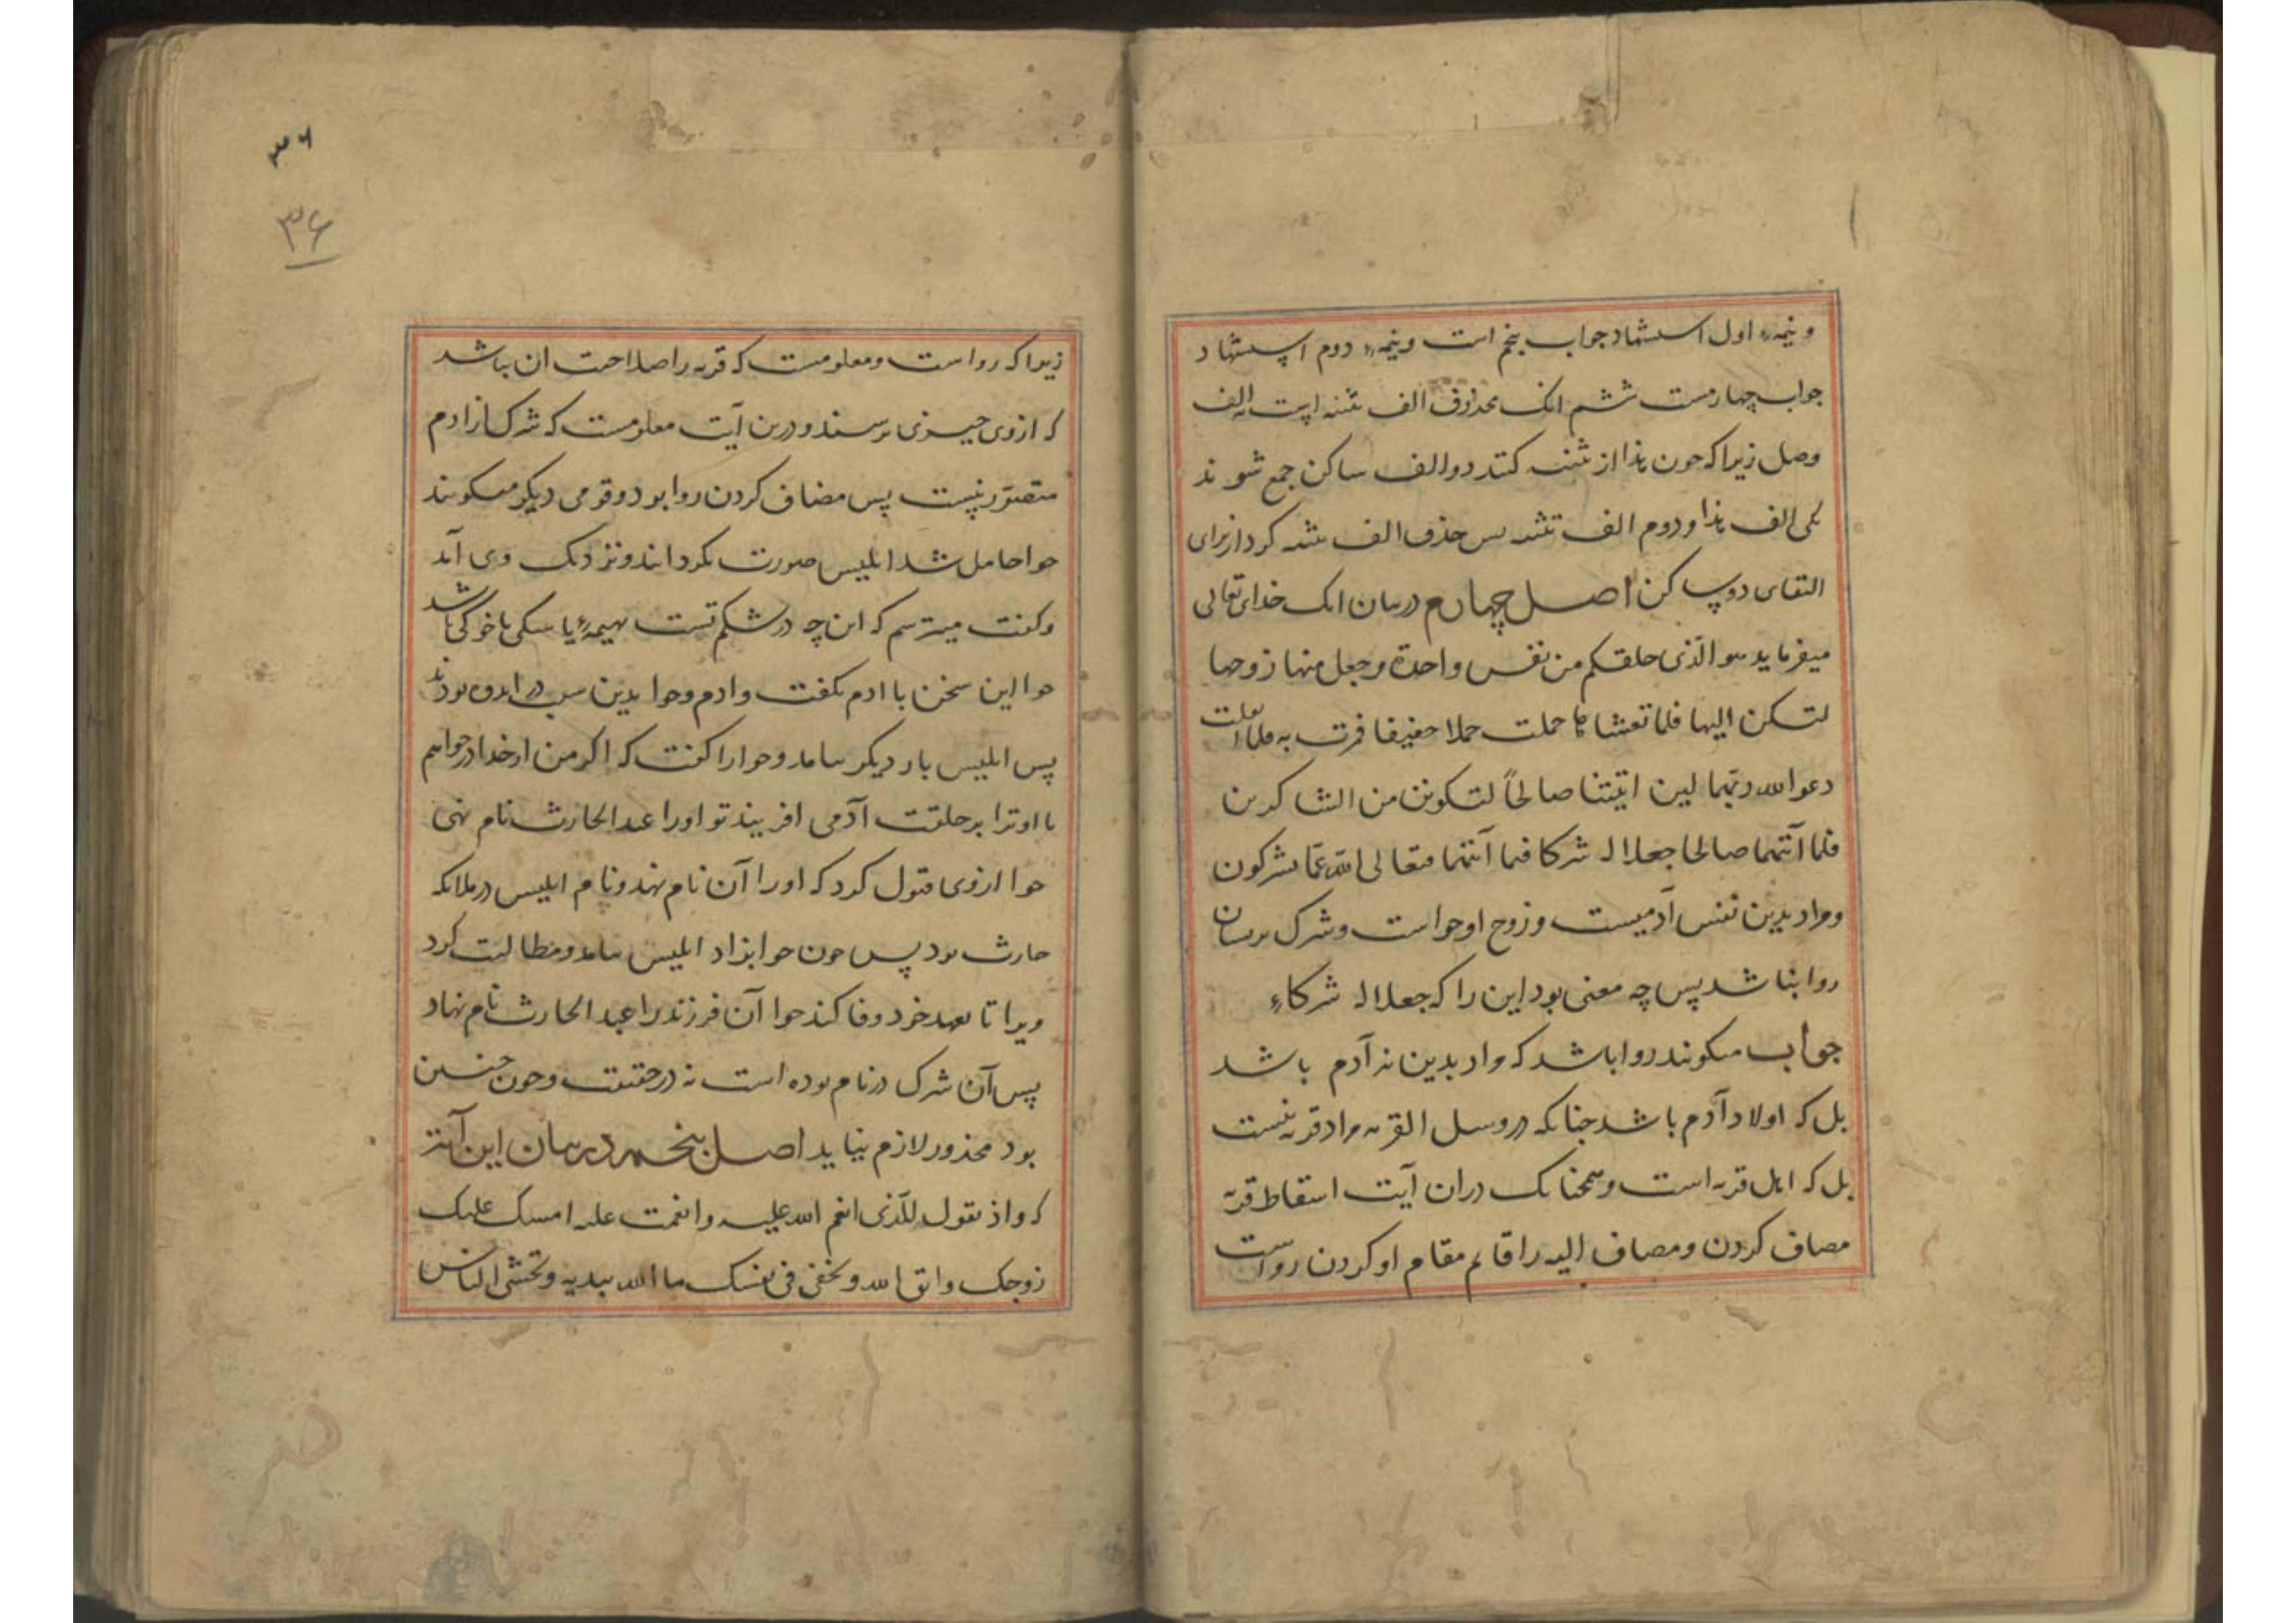 ونیمهٔ اول استشهاد جواب پنجم است ونیمهٔ دوم استشهاد
جواب چهارمست ششم انک محذوف الف تثنیه است نه الف
وصل زیرا که چون هذا از تثنیه کنند دو الف ساکن جمع شوند
یکی الف هذا و دوم الف تثنیه پس حذف الف تثنیه کرد از برای
التقای دو ساکن اصل چهارم در بیان انک خدای تعالی
میفرماید هو الّذی خلقکم من نفس واحدة وجعل منها زوجها
لتسکن الیها فلما تغشاها حملت حملا خفیفا فمرت به فلما اثقلت
دعوا الله ربّهما لین اتیتنا صالحاً لتکونن من الشاکرین
فلما آتیهما صالحا جعلا له شرکا فیما آتیهما فتعالی الله عمّا یشرکون
ومراد بدین نفس آدمیست و زوج او حوا است وشرک بریشان
روا بناشد پس چه معنی بود این را که جعلا له شرکاء
جواب میکویند روا باشد که مراد بدین نه آدم باشد
بل که اولاد آدم باشد چنانکه در وسل القریه مراد قریه نیست
بل که اهل قریه است و همچنانک دران آیت اسقاط قریه
مضاف کردن ومضاف الیه را قایم مقام او کردن رواست
۳۶
۳۶
زیرا که روا است ومعلومست که قریه را صلاحت ان باشد
که ازوی چیزی پرسند و درین آیت معلومست که شرک از ادم
متصوّر نیست پس مضاف کردن روا بود وقومی دیکر میکویند
حوا حامل شد ابلیس صورت بکردانند ونزدیک وی آمد
وکفت میترسم که این چه در شکم تست بهیمهٔ یا سکی یا خوکی باشد
حوا این سخن با ادم بکفت وادم وحوا بدین سبب در اندوه بودند
پس ابلیس بار دیکر بیامد وحوا را کفت که اکر من از خدا درخواهم
تا او ترا بر خلقت آدمی افریند تو اورا عبد الحارث نام نهی
حوا ازوی قبول کرد که اورا آن نام نهد ونام ابلیس در ملائکه
حارث بود پس چون حوا بزاد ابلیس بیامد ومطالبت کرد
ویرا تا بعهد خود وفا کند حوا آن فرزند را عبد الحارث نام نهاد
پس آن شرک در نام بوده است نه در حقیقت وچون چنین
بود محذور لازم نیاید اصل پنجم در بیان این آیت
که واذ تقول للّذی انعم الله علیه وانعمت علیه امسک علیک
زوجک واتق الله وتخفی فی نفسک ما الله مبدیه وتخشی الناس